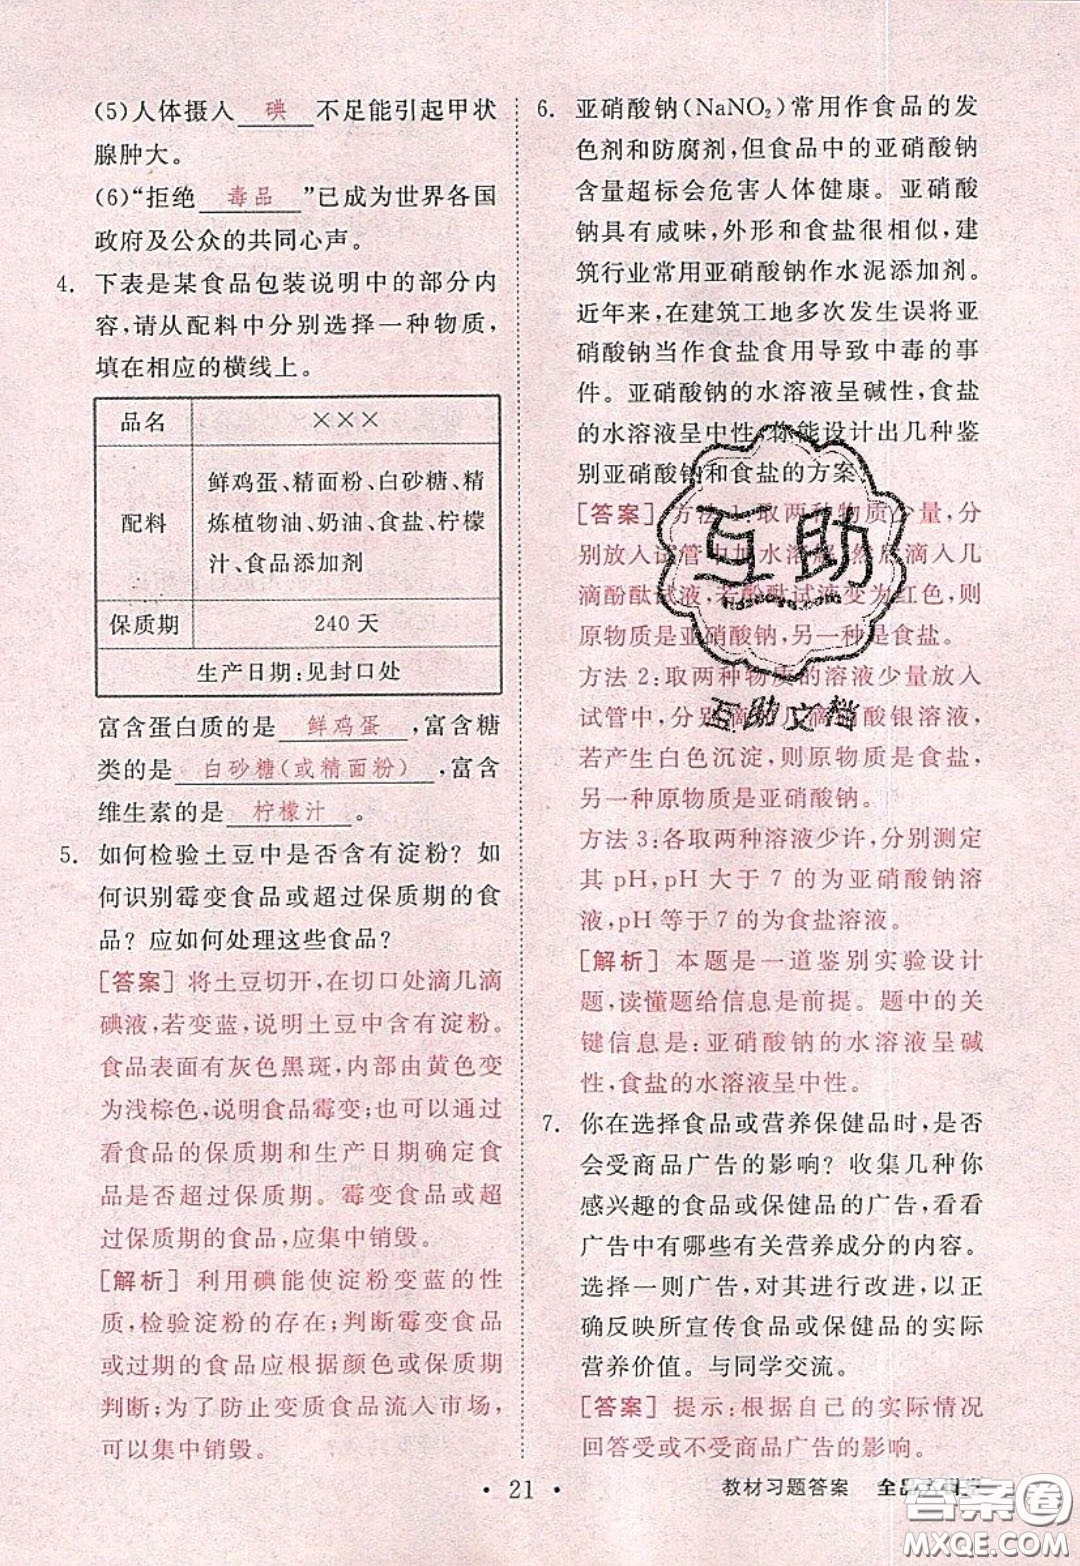 (5)人体摄入 碘 不足能引起甲状
腺肿大。
(6)“拒绝 毒品 ”已成为世界各国
政府及公众的共同心声。
4. 下表是某食品包装说明中的部分内
容,请从配料中分别选择一种物质,
填在相应的横线上。
品名 ×××
配料 鲜鸡蛋、精面粉、白砂糖、精
炼植物油、奶油、食盐、柠檬
汁、食品添加剂
保质期 240天
生产日期:见封口处
富含蛋白质的是 鲜鸡蛋 ,富含糖
类的是 白砂糖(或精面粉) ,富含
维生素的是 柠檬汁 。
5. 如何检验土豆中是否含有淀粉?如
何识别霉变食品或超过保质期的食
品?应如何处理这些食品?
[答案] 将土豆切开,在切口处滴几滴
碘液,若变蓝,说明土豆中含有淀粉。
食品表面有灰色黑斑,内部由黄色变
为浅棕色,说明食品霉变;也可以通过
看食品的保质期和生产日期确定食
品是否超过保质期。霉变食品或超
过保质期的食品,应集中销毁。
[解析] 利用碘能使淀粉变蓝的性
质,检验淀粉的存在;判断霉变食品
或过期的食品应根据颜色或保质期
判断;为了防止变质食品流入市场,
可以集中销毁。
6. 亚硝酸钠(NaNO₂)常用作食品的发
色剂和防腐剂,但食品中的亚硝酸钠
含量超标会危害人体健康。亚硝酸
钠具有咸味,外形和食盐很相似,建
筑行业常用亚硝酸钠作水泥添加剂。
近年来,在建筑工地多次发生误将亚
硝酸钠当作食盐食用导致中毒的事
件。亚硝酸钠的水溶液呈碱性,食盐
的水溶液呈中性,你能设计出几种鉴
别亚硝酸钠和食盐的方案
[答案] 方法1:取两种物质少量,分
别放入试管中加水溶解,然后滴入几
滴酚酞试液,若酚酞试液变为红色,则
原物质是亚硝酸钠,另一种是食盐。
方法2:取两种物质的溶液少量放入
试管中,分别滴入几滴硝酸银溶液,
若产生白色沉淀,则原物质是食盐,
另一种原物质是亚硝酸钠。
方法3:各取两种溶液少许,分别测定
其pH,pH大于7的为亚硝酸钠溶
液,pH等于7的为食盐溶液。
[解析] 本题是一道鉴别实验设计
题,读懂题给信息是前提。题中的关
键信息是:亚硝酸钠的水溶液呈碱
性,食盐的水溶液呈中性。
7. 你在选择食品或营养保健品时,是否
会受商品广告的影响?收集几种你
感兴趣的食品或保健品的广告,看看
广告中有哪些有关营养成分的内容。
选择一则广告,对其进行改进,以正
确反映所宣传食品或保健品的实际
营养价值。与同学交流。
[答案] 提示:根据自己的实际情况
回答受或不受商品广告的影响。
互助
互助文档
• 21 •
教材习题答案 全品
答案圈
MXQE.COM